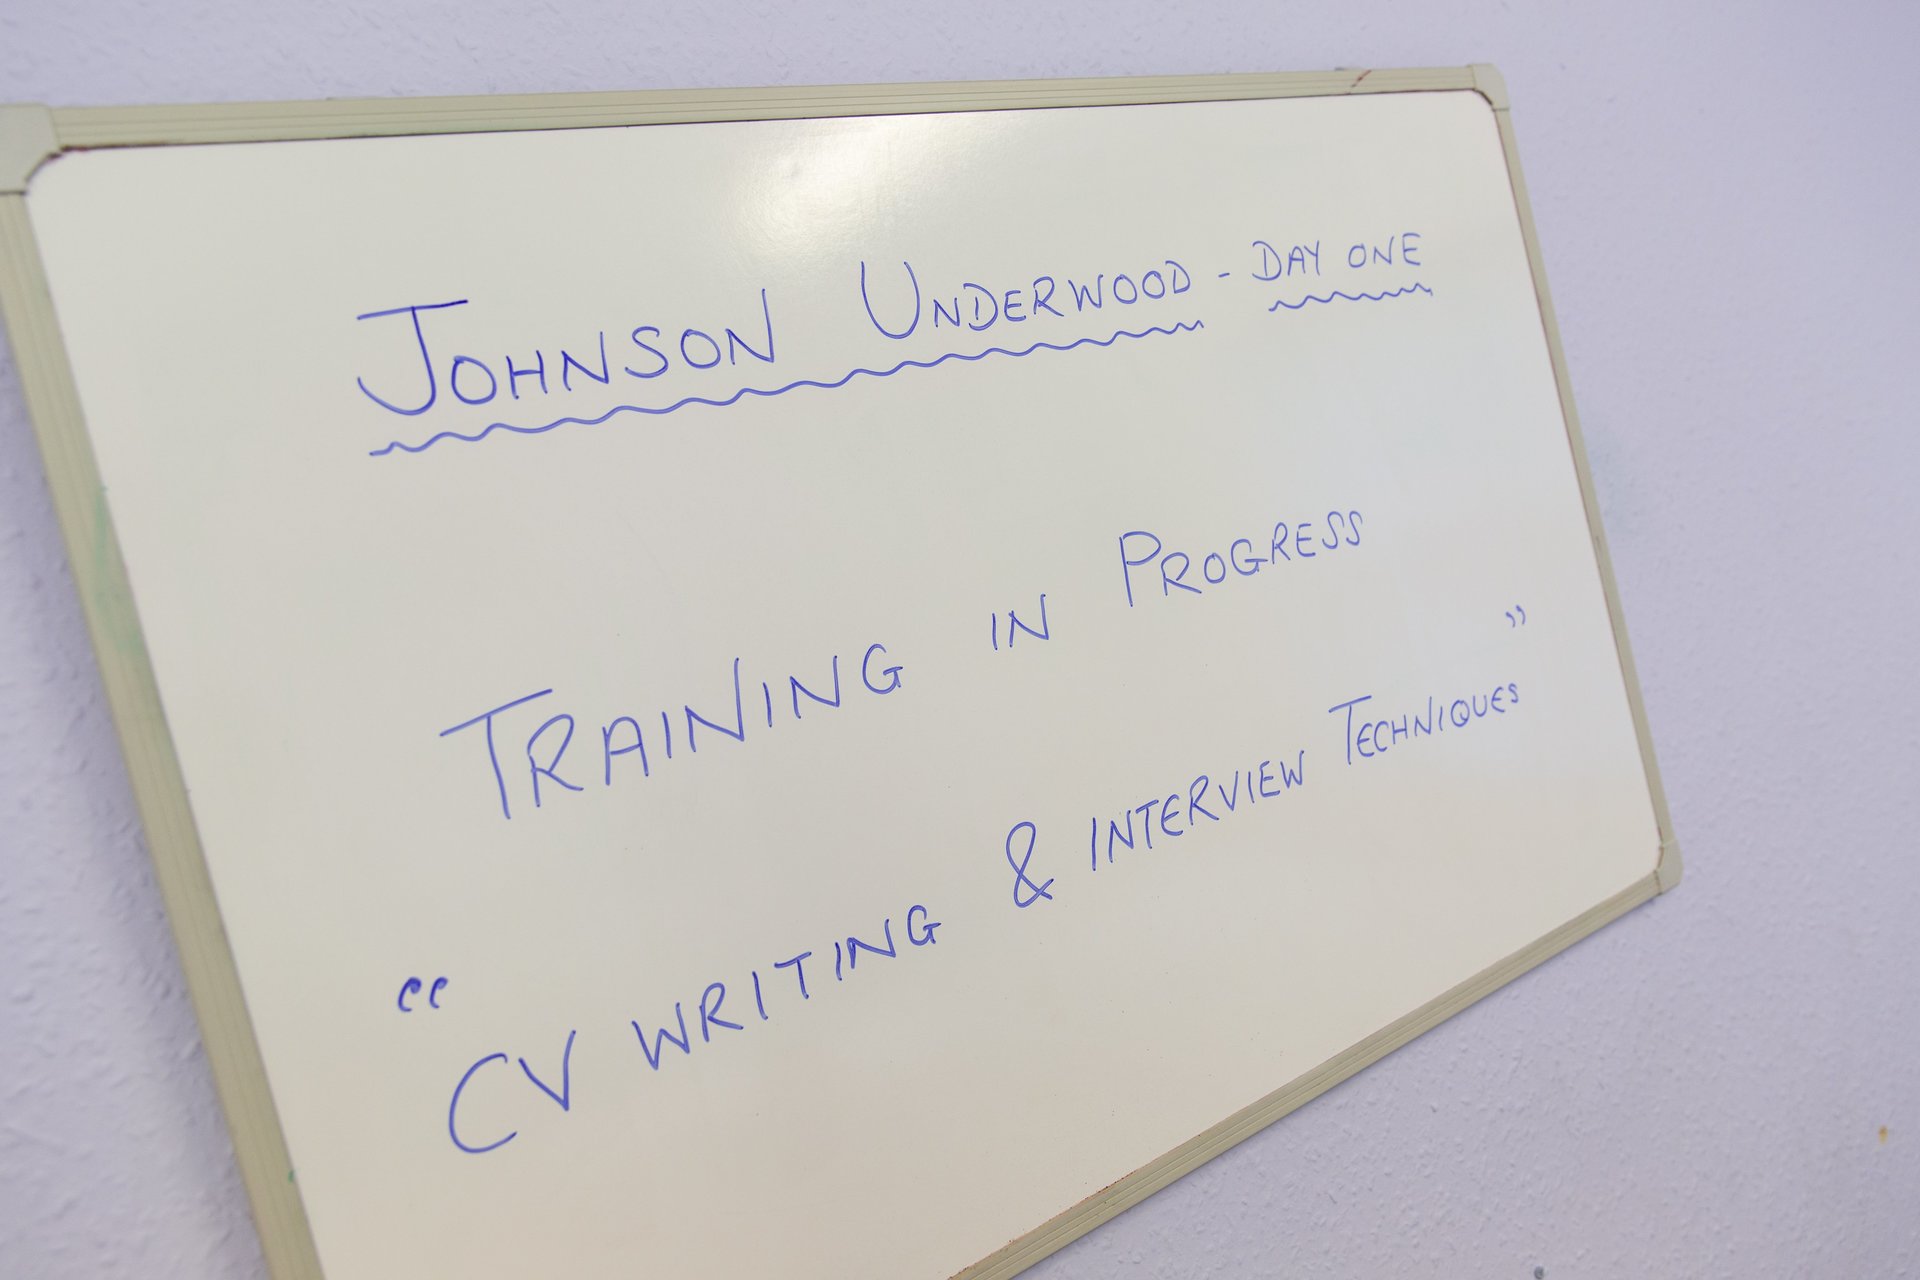 JOHNSON UNDERWOOD - DAY ONE
TRAINING IN PROGRESS
“CV WRITING & INTERVIEW TECHNIQUES”